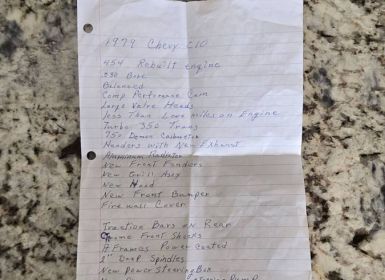 1979 Chevy C10
454 Rebuilt engine
.030 Bore
Balanced
Comp Performance Cam
Large Valve Heads
Less Than 1,000 miles on Engine
Turbo 350 Trans
750 Demon Carburetor
Headers with New Exhaust
Aluminum Radiator
New Front Fenders
New Grill Assy
New Hood
New Front Bumper
Fire wall Cover
Traction Bars on Rear
Chrome Front Shocks
A Frames Power Coated
2" Drop Spindles
New Power Steering Box
Pump